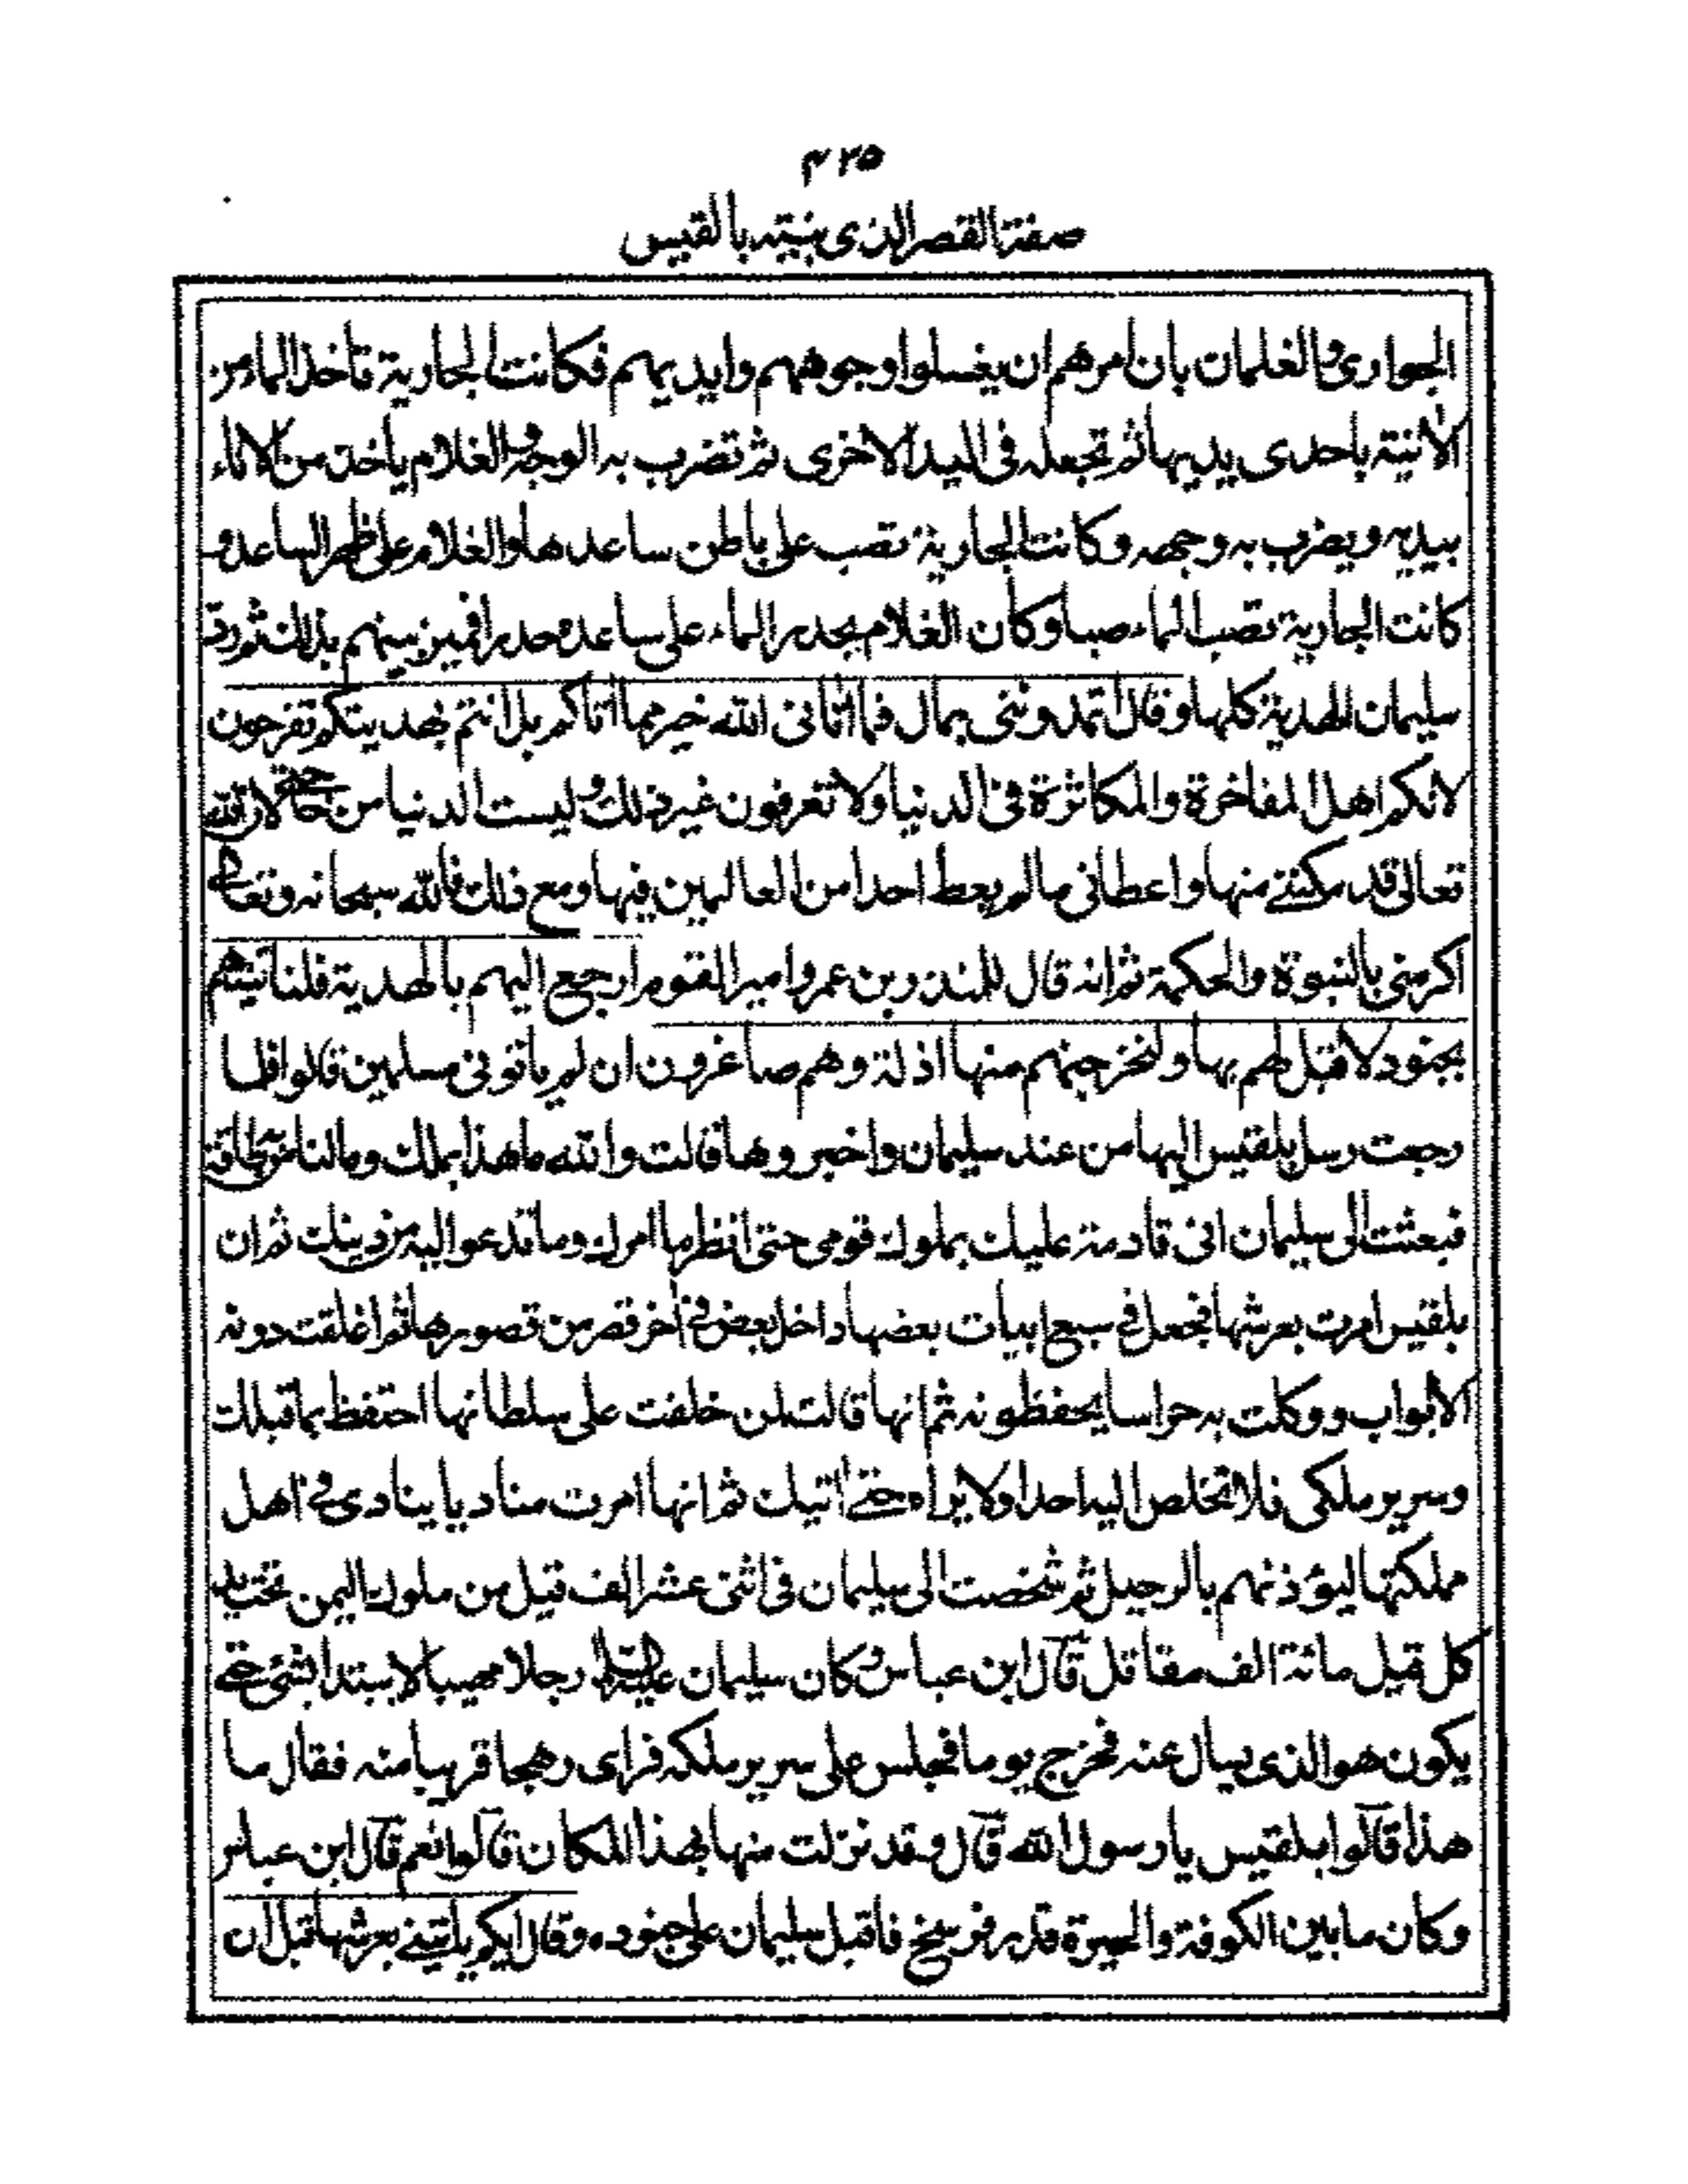 ٤٢٥
صفة القصر الذى بنيته بالقيس
الجوارى والغلمان بان امرهم ان يغسلوا وجوههم وايديهم فكانت الجارية تاخذ الماء من
الآنية باحدى يديها ثم تجعله فى اليد الاخرى ثم تضرب به الوجه والغلام ياخذ من الاناء
بيديه ويضرب به وجهه وكانت الجارية تصب على باطن ساعدها والغلام على ظهر الساعد و
كانت الجارية تصب الماء صبا وكان الغلام يحدر الماء على ساعده حدرا فميز بينهم بذلك ثم رد
سليمان الهدية كلها وقال اتمدوننى بمال فما اتانى الله خير مما اتاكم بل انتم بهديتكم تفرحون
لانكم اهل المفاخرة والمكاثرة فى الدنيا ولا تعرفون غير ذلك وليست الدنيا من حاجتى لان الله
تعالى قد مكننى منها واعطانى ما لم يعط احدا من العالمين فيها ومع ذلك فالله سبحانه وتعالى
اكرمنى بالنبوة والحكمة ثم انه قال للمنذر بن عمرو امير القوم ارجع اليهم بالهدية فلناتينهم
بجنود لا قبل لهم بها ولنخرجنهم منها اذلة وهم صاغرون ان لم ياتونى مسلمين قالوا فلما
رجعت رسل بلقيس اليها من عند سليمان واخبروها قالت والله ما هذا بملك وما لنا به طاقة
فبعثت الى سليمان انى قادمة عليك بملوك قومى حتى انظر ما امرك وما تدعو اليه من دينك ثم ان
بلقيس امرت بعرشها فجعل فى سبع ابيات بعضها داخل بعض فى آخر قصر من قصورها ثم اغلقت دونه
الابواب ووكلت به حراسا يحفظونه ثم انها قالت لمن خلفت على سلطانها احتفظ بما قبلك
وسرير ملكى فلا تخلص اليه احدا ولا يراه حتى اتيك ثم انها امرت مناديا ينادى فى اهل
مملكتها ليؤذنهم بالرحيل ثم شخصت الى سليمان فى اثنى عشر الف قيل من ملوك اليمن تحت يد
كل قيل مائة الف مقاتل قال ابن عباس وكان سليمان عليه السلام رجلا مهيبا لا يبتدا بشئ حتى
يكون هو الذى يسال عنه فخرج يوما فجلس على سرير ملكه فراى رهجا قريبا منه فقال ما
هذا قالوا بلقيس يا رسول الله قال وقد نزلت منها بهذا المكان قالوا نعم قال ابن عباس
وكان ما بين الكوفة والحيرة قدر فرسخ فاقبل سليمان على جنوده وقال ايكم ياتينى بعرشها قبل ان